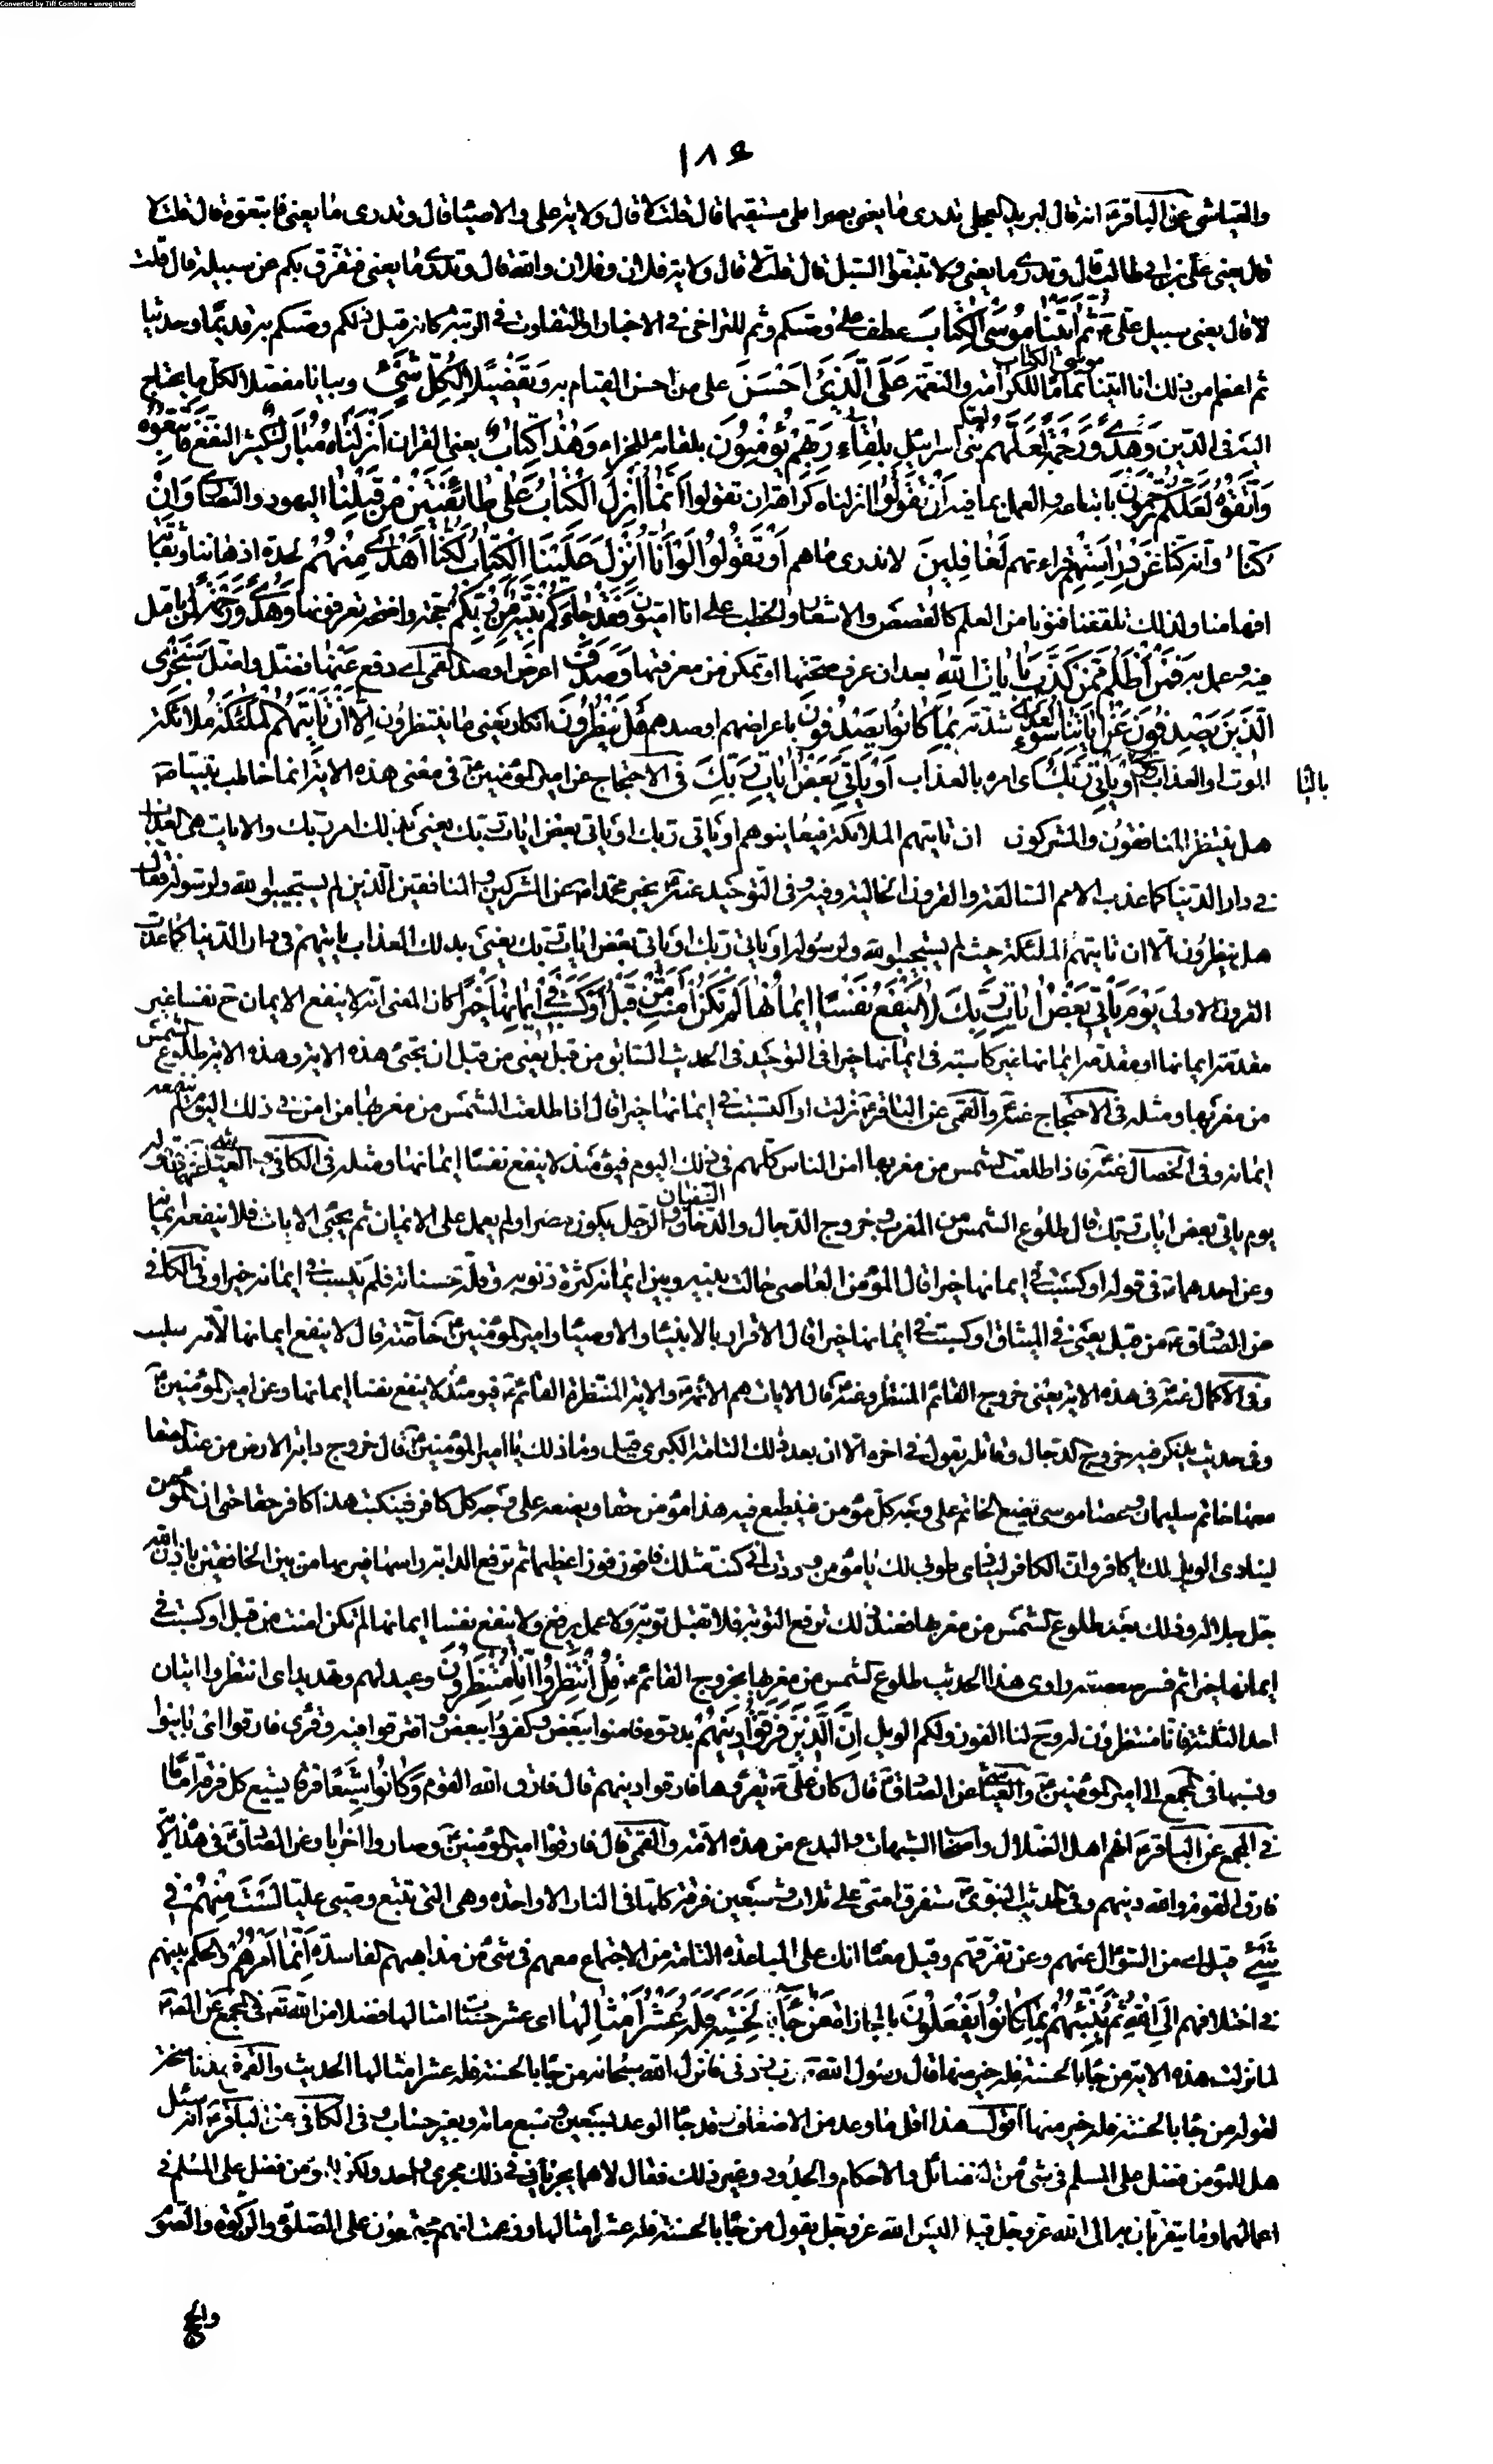 Converted by Tiff Combine - unregistered
١٨٤
والعياشي عن الباقر ع انه قال لبريد العجلي تدرى ما يعنى بصراطي مستقيما قال قلت لا قال ولاية على والاوصياء قال وتدرى ما يعنى فاتبعوه قال قلت لا
قال يعنى على بن ابي طالب قال وتدرى ما يعنى ولا تتبعوا السبل قال قلت لا قال ولاية فلان وفلان والله قال وتدرى ما يعنى فتفرق بكم عن سبيله قال قلت
لا قال يعنى سبيل على ع ثُمَّ آتَيْنا مُوسَى الْكِتابَ عطف على وصيكم وثم للتراخى فى الاخبار او للتفاوت فى الرتبة كانه قيل ذلكم وصيكم به قديما وحديثا
ثم اعظم من ذلك انا اتينا موسى الكتاب تماما للكرامة والنعمة عَلَى الَّذِي اَحْسَنَ على من احسن القيام به وَتَفْصِيلًا لِكُلِّ شَيْءٍ وبيانا مفصلا لكل ما يحتاج
اليه فى الدين وَهُدًى وَرَحْمَةً لَعَلَّهُمْ لعل بنى اسرائيل بِلِقاءِ رَبِّهِمْ يُؤْمِنُونَ بلقائه للجزاء وَهذا كِتابٌ يعنى القران اَنْزَلْناهُ مُبارَكٌ كثير النفع فَاتَّبِعُوهُ
وَاتَّقُوا لَعَلَّكُمْ تُرْحَمُونَ باتباعه والعمل بما فيه اَنْ تَقُولُوا انزلناه كراهة ان تقولوا اِنَّما اُنْزِلَ الْكِتابُ عَلى طائِفَتَيْنِ مِنْ قَبْلِنا اليهود والنصارى وَاِنْ
كُنّا وانه كنا عَنْ دِراسَتِهِمْ قراءتهم لَغافِلِينَ لا ندرى ما هم اَوْ تَقُولُوا لَوْ اَنّا اُنْزِلَ عَلَيْنَا الْكِتابُ لَكُنّا اَهْدى مِنْهُمْ لحدة اذهاننا وثقابة
افهامنا ولذلك تلقفنا فنونا من العلم كالقصص والاشعار والخطب على انا اميون فَقَدْ جاءَكُمْ بَيِّنَةٌ مِنْ رَبِّكُمْ حجة واضحة تعرفونها وَهُدًى وَرَحْمَةٌ لمن تامل
فيه وعمل به فَمَنْ اَظْلَمُ مِمَّنْ كَذَّبَ بِآياتِ اللهِ بعد ان عرف صحتها او تمكن من معرفتها وَصَدَفَ اعرض او صد القمى اى دفع عَنْها فضل واضل سَنَجْزِي
الَّذِينَ يَصْدِفُونَ عَنْ آياتِنا سُوءَ الْعَذابِ شدته بِما كانُوا يَصْدِفُونَ باعراضهم او صدهم هَلْ يَنْظُرُونَ انكار يعنى ما ينتظرون اِلّا اَنْ تَأْتِيَهُمُ الْمَلئِكَةُ ملائكة
الموت او العذاب اَوْ يَأْتِيَ رَبُّكَ اى امره بالعذاب اَوْ يَأْتِيَ بَعْضُ آياتِ رَبِّكَ فى الاحتجاج عن امير المؤمنين ع فى معنى هذه الاية انما خاطب نبينا ص
هل ينتظر المنافقون والمشركون ان تاتيهم الملائكة فيعاينوهم او ياتى ربك او ياتى بعض ايات ربك يعنى بذلك امر ربك والايات هى العذاب
فى دار الدنيا كما عذب الامم السالفة والقرون الخالية وفيه وفى التوحيد عنه ع يخبر محمدا ص عن المشركين والمنافقين الذين لم يستجيبوا لله ولرسوله فقال
هل ينظرون الا ان تاتيهم الملئكة حيث لم يستجيبوا لله ولرسوله او ياتى ربك او ياتى بعض ايات ربك يعنى بذلك العذاب ياتيهم فى دار الدنيا كما عذب
القرون الاولى يَوْمَ يَأْتِي بَعْضُ آياتِ رَبِّكَ لا يَنْفَعُ نَفْسًا اِيمانُها لَمْ تَكُنْ آمَنَتْ مِنْ قَبْلُ اَوْ كَسَبَتْ فِي اِيمانِها خَيْرًا كان المعنى انه لا ينفع الايمان ح نفسا غير
مقدمة ايمانها او مقدمة ايمانها غير كاسبة فى ايمانها خيرا فى التوحيد فى الحديث السابق من قبل يعنى من قبل ان تجئ هذه الاية وهذه الاية طلوع الشمس
من مغربها ومثله فى الاحتجاج عنه ع والقمى عن الباقر ع نزلت او اكتسبت فى ايمانها خيرا قال اذا طلعت الشمس من مغربها من امن فى ذلك اليوم لم ينفعه
ايمانه وفى الخصال عنه ع فاذا طلعت الشمس من مغربها امن الناس كلهم فى ذلك اليوم فيومئذ لا ينفع نفسا ايمانها ومثله فى الكافى والعياشى عنهما ع فى قوله
يوم ياتى بعض ايات ربك قال طلوع الشمس من المغرب وخروج الدجال والدخان والرجل يكون مصرا ولم يعمل على الايمان ثم تجئ الايات فلا ينفعه ايمانه
وعن احدهما ع فى قوله او كسبت فى ايمانها خيرا قال المؤمن العاصى حالت بينه وبين ايمانه كثرة ذنوبه وقلة حسناته فلم يكسب فى ايمانه خيرا وفى الكافى
عن الصادق ع من قبل يعنى فى الميثاق او كسبت فى ايمانها خيرا قال الاقرار بالانبياء والاوصياء وامير المؤمنين ع خاصة قال لا ينفع ايمانها لانه سلبت
وفى الاكمال عنه ع فى هذه الاية يعنى خروج القائم المنتظر وعنه ع قال الايات هم الائمة والاية المنتظرة القائم ع فيومئذ لا ينفع نفسا ايمانها وعن امير المؤمنين ع
وفى حديث يذكر فيه خروج الدجال وقاتله يقول فى اخره الا ان بعد ذلك الطامة الكبرى قيل وما ذلك يا امير المؤمنين ع قال خروج دابة الارض من عند الصفا
معها خاتم سليمان وعصا موسى تضع الخاتم على وجه كل مؤمن فينطبع فيه هذا مؤمن حقا ويضعه على وجه كل كافر فيكتب هذا كافر حقا حتى ان المؤمن
لينادى الويل لك يا كافر وان الكافر لينادى طوبى لك يا مؤمن وددت انى كنت مثلك فافوز فوزا عظيما ثم ترفع الدابة راسها فيراها من بين الخافقين باذن الله
جل جلاله وذلك بعد طلوع الشمس من مغربها فعند ذلك ترفع التوبة فلا تقبل توبة ولا عمل يرفع ولا ينفع نفسا ايمانها لم تكن امنت من قبل او كسبت فى
ايمانها خيرا ثم فسر صعصعة راوى هذا الحديث طلوع الشمس من مغربها بخروج القائم ع قُلِ انْتَظِرُوا اِنّا مُنْتَظِرُونَ وعيد لهم وتهديد اى انتظروا اتيان
احد الثلثة فانا منتظرون له وح لنا الفوز ولكم الويل اِنَّ الَّذِينَ فَرَّقُوا دِينَهُمْ بددوه فامنوا ببعض وكفروا ببعض وافترقوا فيه وقرئ فارقوا اى باينوا
ونسبها فى المجمع الى امير المؤمنين ع والعياشى عن الصادق ع قال كان على ع يقرؤها فارقوا دينهم قال فارق والله القوم وَكانُوا شِيَعًا فرقا يشيع كل فرقة اماما
فى المجمع عن الباقر ع انهم اهل الضلال واصحاب الشبهات والبدع من هذه الامة والقمى قال فارقوا امير المؤمنين ع وصاروا احزابا وعن الصادق ع فى هذه الاية
فارق القوم والله دينهم وفى الحديث النبوى ص ستفرق امتى على ثلاث وسبعين فرقة كلها فى النار الا واحدة وهى التى تتبع وصيى عليا لَسْتَ مِنْهُمْ فِي
شَيْءٍ قيل اى من السؤال عنهم وعن تفرقهم وقيل معناه انك على المباعدة التامة من الاجتماع معهم فى شئ من مذاهبهم الفاسدة اِنَّما اَمْرُهُمْ والحكم بينهم
فى اختلافهم اِلَى اللهِ ثُمَّ يُنَبِّئُهُمْ بِما كانُوا يَفْعَلُونَ بالمجازاة مَنْ جاءَ بِالْحَسَنَةِ فَلَهُ عَشْرُ اَمْثالِها اى عشر حسنات امثالها فضلا من الله تع فى المجمع عن الصادق ع
لما نزلت هذه الاية من جاء بالحسنة فله خير منها قال رسول الله ص رب زدنى فانزل الله سبحانه من جاء بالحسنة فله عشر امثالها الحديث
لقوله من جاء بالحسنة فله خير منها اقول هذا اقل ما وعد من الاضعاف وقد جاء الوعد بسبعين وسبع مائة وبغير حساب وفى الكافى عن الباقر ع انه سئل
هل للمؤمن فضل على المسلم فى شئ من الفضائل والاحكام والحدود وغير ذلك فقال لا هما يجريان فى ذلك مجرى واحد ولكن للمؤمن فضل على المسلم فى
اعمالهما وما يتقربان به الى الله عز وجل قيل اليس الله عز وجل يقول من جاء بالحسنة فله عشر امثالها وزعمت انهم مجتمعون على الصلوة والزكوة والصوم
والحج